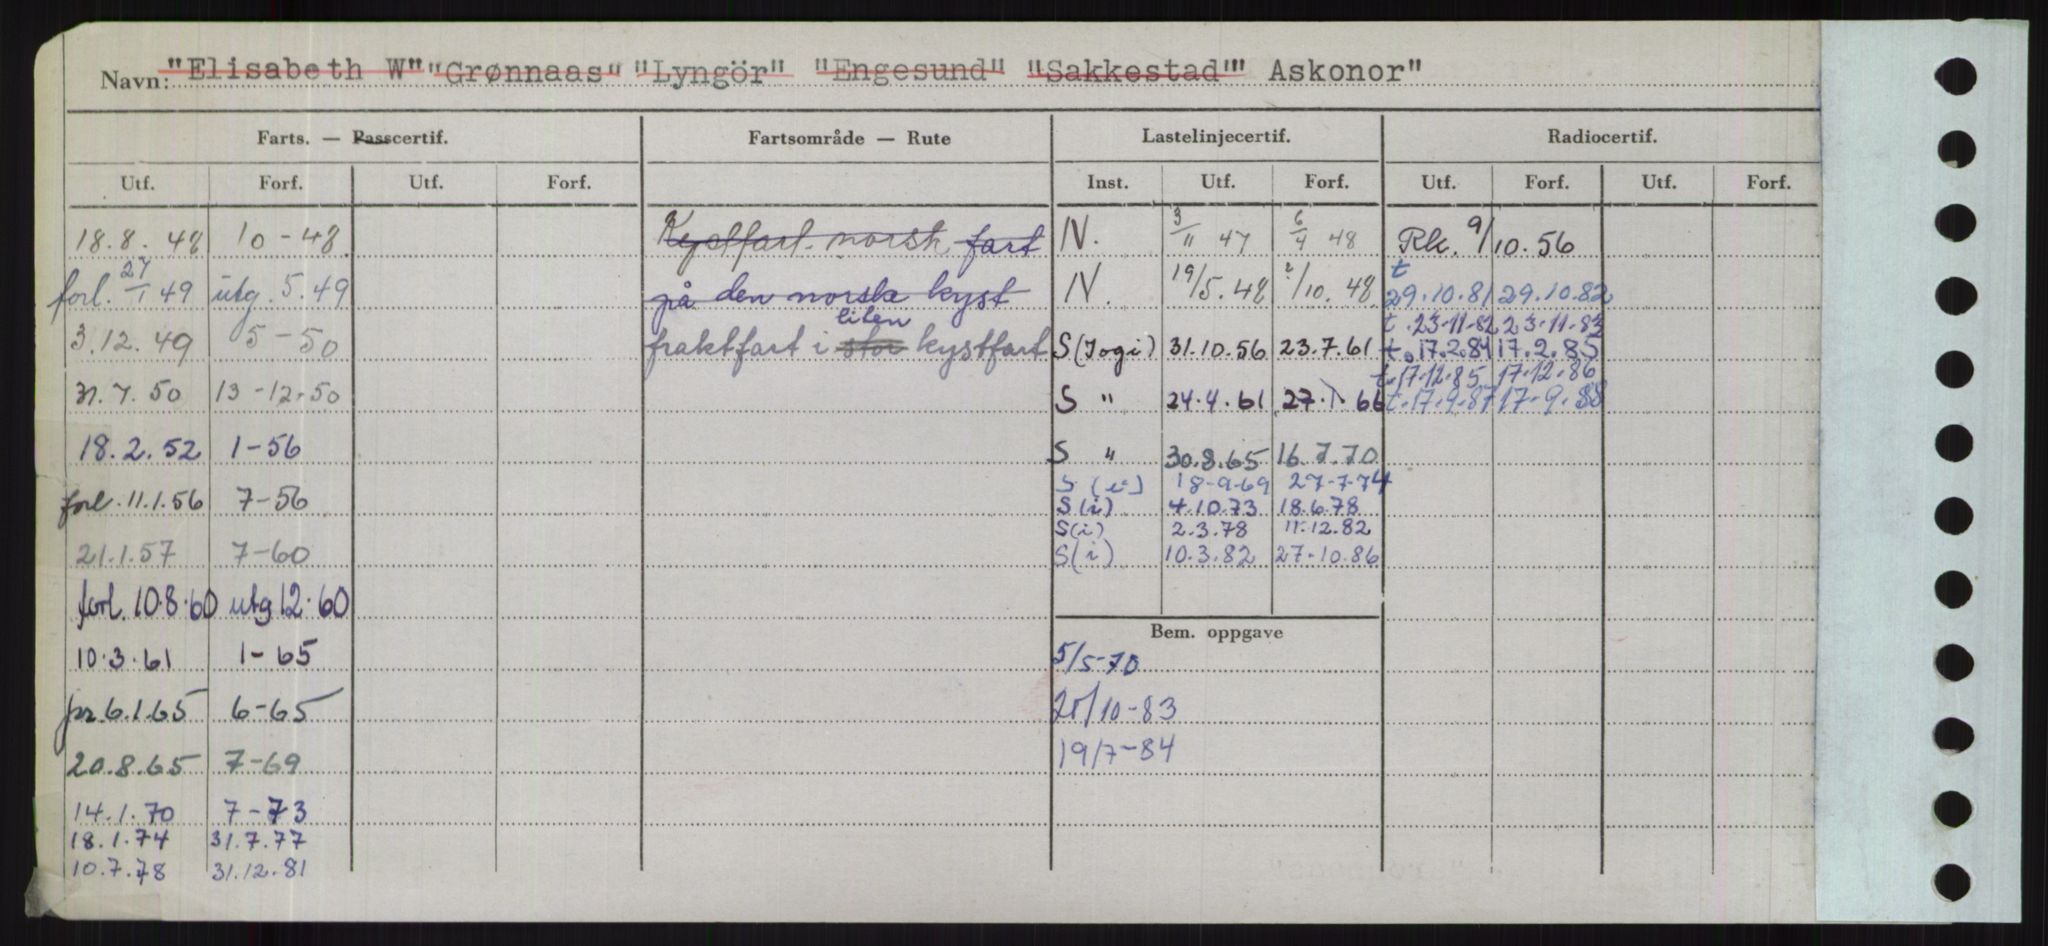 Navn: "Elisabeth W" "Grønnaas" "Lyngör" "Engesund" "Sakkestad"" Askonor"
Farts. — Passcertif. Fartsområde — Rute Lastelinjecertif. Radiocertif.
Utf. Forf. Utf. Forf. Inst. Utf. Forf. Utf. Forf. Utf. Forf.
18.8.48 10-48 Kystfart norsk fart N. 3/11 47 6/4 48 Rk. 9/10.56
forl. 27/1 49 utg. 5.49 på den norske kyst N. 19/5.48 2/10.48 t 29.10.81 29.10.82
liten t. 23-11-82 23-11-83
3.12.49 5-50 fraktfart i stor kystfart S (Jogi) 31.10.56 23.7.61 t. 17.2.84 17.2.85
t. 17.12.85 17.12.86
7.50 13-12-50 S " 24.4.61 27.1.66 t. 17.9.87 17.9.88
18.2.52 1-56 S " 30.8.65 16.7.70
S 18-9-69 27-7-74
forl. 11.1.56 7-56 S(i) 4.10.73 18.6.78
S(i) 2.3.78 11.12.82
21.1.57 7-60 S(i) 10.3.82 27-10.86
forl. 10.8.60 utg 12.60
Bem. oppgave
10.3.61 1-65 5/5-70
6.1.65 6-65 /10-83
20.8.65 7-69 19/7-84
14.1.70 7-73
18.1.74 31.7.77
10.7.78 31.12.81